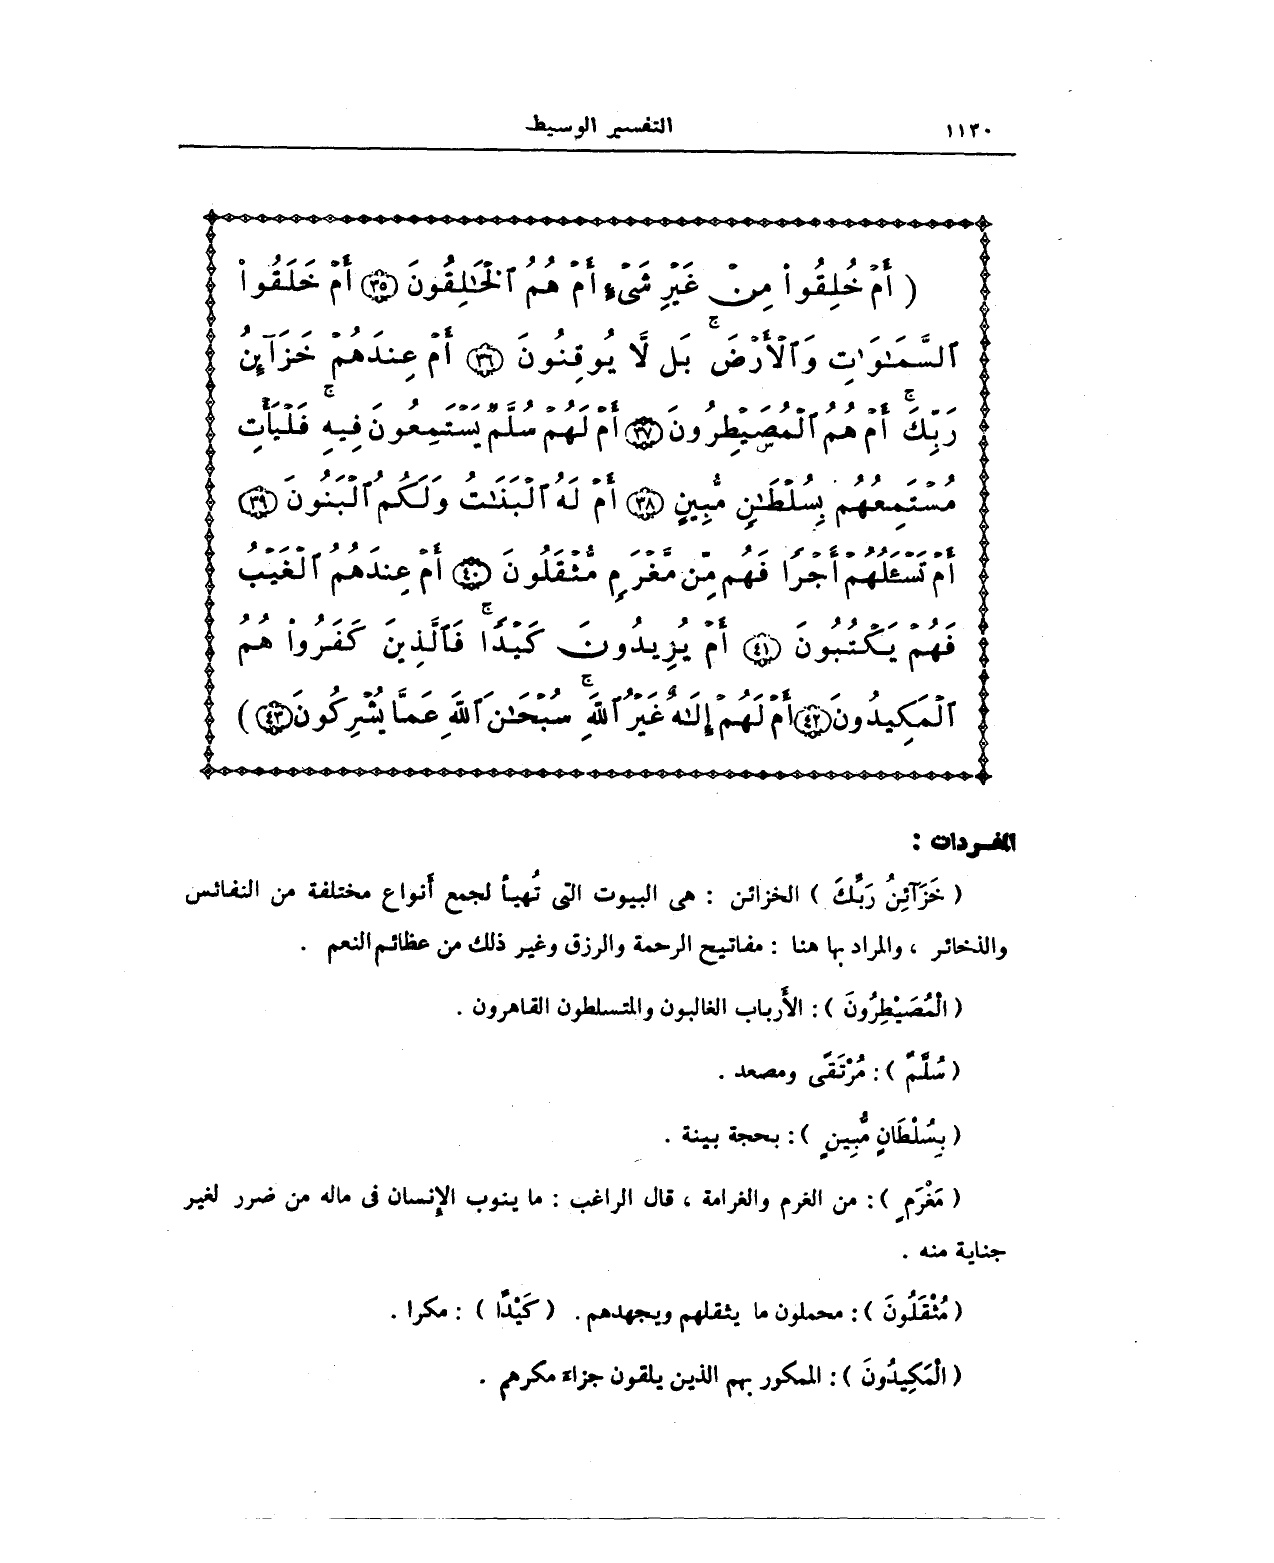 ١١٣٠ التفسير الوسيط
( أَمْ خُلِقُوا۟ مِنْ غَيْرِ شَىْءٍ أَمْ هُمُ ٱلْخَٰلِقُونَ ٣٥ أَمْ خَلَقُوا۟
ٱلسَّمَٰوَٰتِ وَٱلْأَرْضَ ۚ بَل لَّا يُوقِنُونَ ٣٦ أَمْ عِندَهُمْ خَزَآئِنُ
رَبِّكَ أَمْ هُمُ ٱلْمُصَۣيْطِرُونَ ٣٧ أَمْ لَهُمْ سُلَّمٌ يَسْتَمِعُونَ فِيهِ ۖ فَلْيَأْتِ
مُسْتَمِعُهُم بِسُلْطَٰنٍ مُّبِينٍ ٣٨ أَمْ لَهُ ٱلْبَنَٰتُ وَلَكُمُ ٱلْبَنُونَ ٣٩
أَمْ تَسْـَٔلُهُمْ أَجْرًا فَهُم مِّن مَّغْرَمٍ مُّثْقَلُونَ ٤٠ أَمْ عِندَهُمُ ٱلْغَيْبُ
فَهُمْ يَكْتُبُونَ ٤١ أَمْ يُرِيدُونَ كَيْدًا ۖ فَٱلَّذِينَ كَفَرُوا۟ هُمُ
ٱلْمَكِيدُونَ ٤٢ أَمْ لَهُمْ إِلَٰهٌ غَيْرُ ٱللَّهِ ۚ سُبْحَٰنَ ٱللَّهِ عَمَّا يُشْرِكُونَ ٤٣ )
المفـردات :
( خَزَآئِنُ رَبِّكَ ) الخزائن : هى البيوت التى تُهيأ لجمع أنواع مختلفة من النفائس
والذخائر ، والمراد بها هنا : مفاتيح الرحمة والرزق وغير ذلك من عظائم النعم .
( الْمُصَيْطِرُونَ ) : الأرباب الغالبون والمتسلطون القاهرون .
( سُلَّمٌ ) : مُرْتَقًى ومصعد .
( بِسُلْطَانٍ مُّبِينٍ ) : بحجة بينة .
( مَغْرَمٍ ) : من الغرم والغرامة ، قال الراغب : ما ينوب الإنسان فى ماله من ضرر لغير
جناية منه .
( مُثْقَلُونَ ) : محملون ما يثقلهم ويجهدهم . ( كَيْدًا ) : مكرا .
( الْمَكِيدُونَ ) : الممكور بهم الذين يلقون جزاء مكرهم .